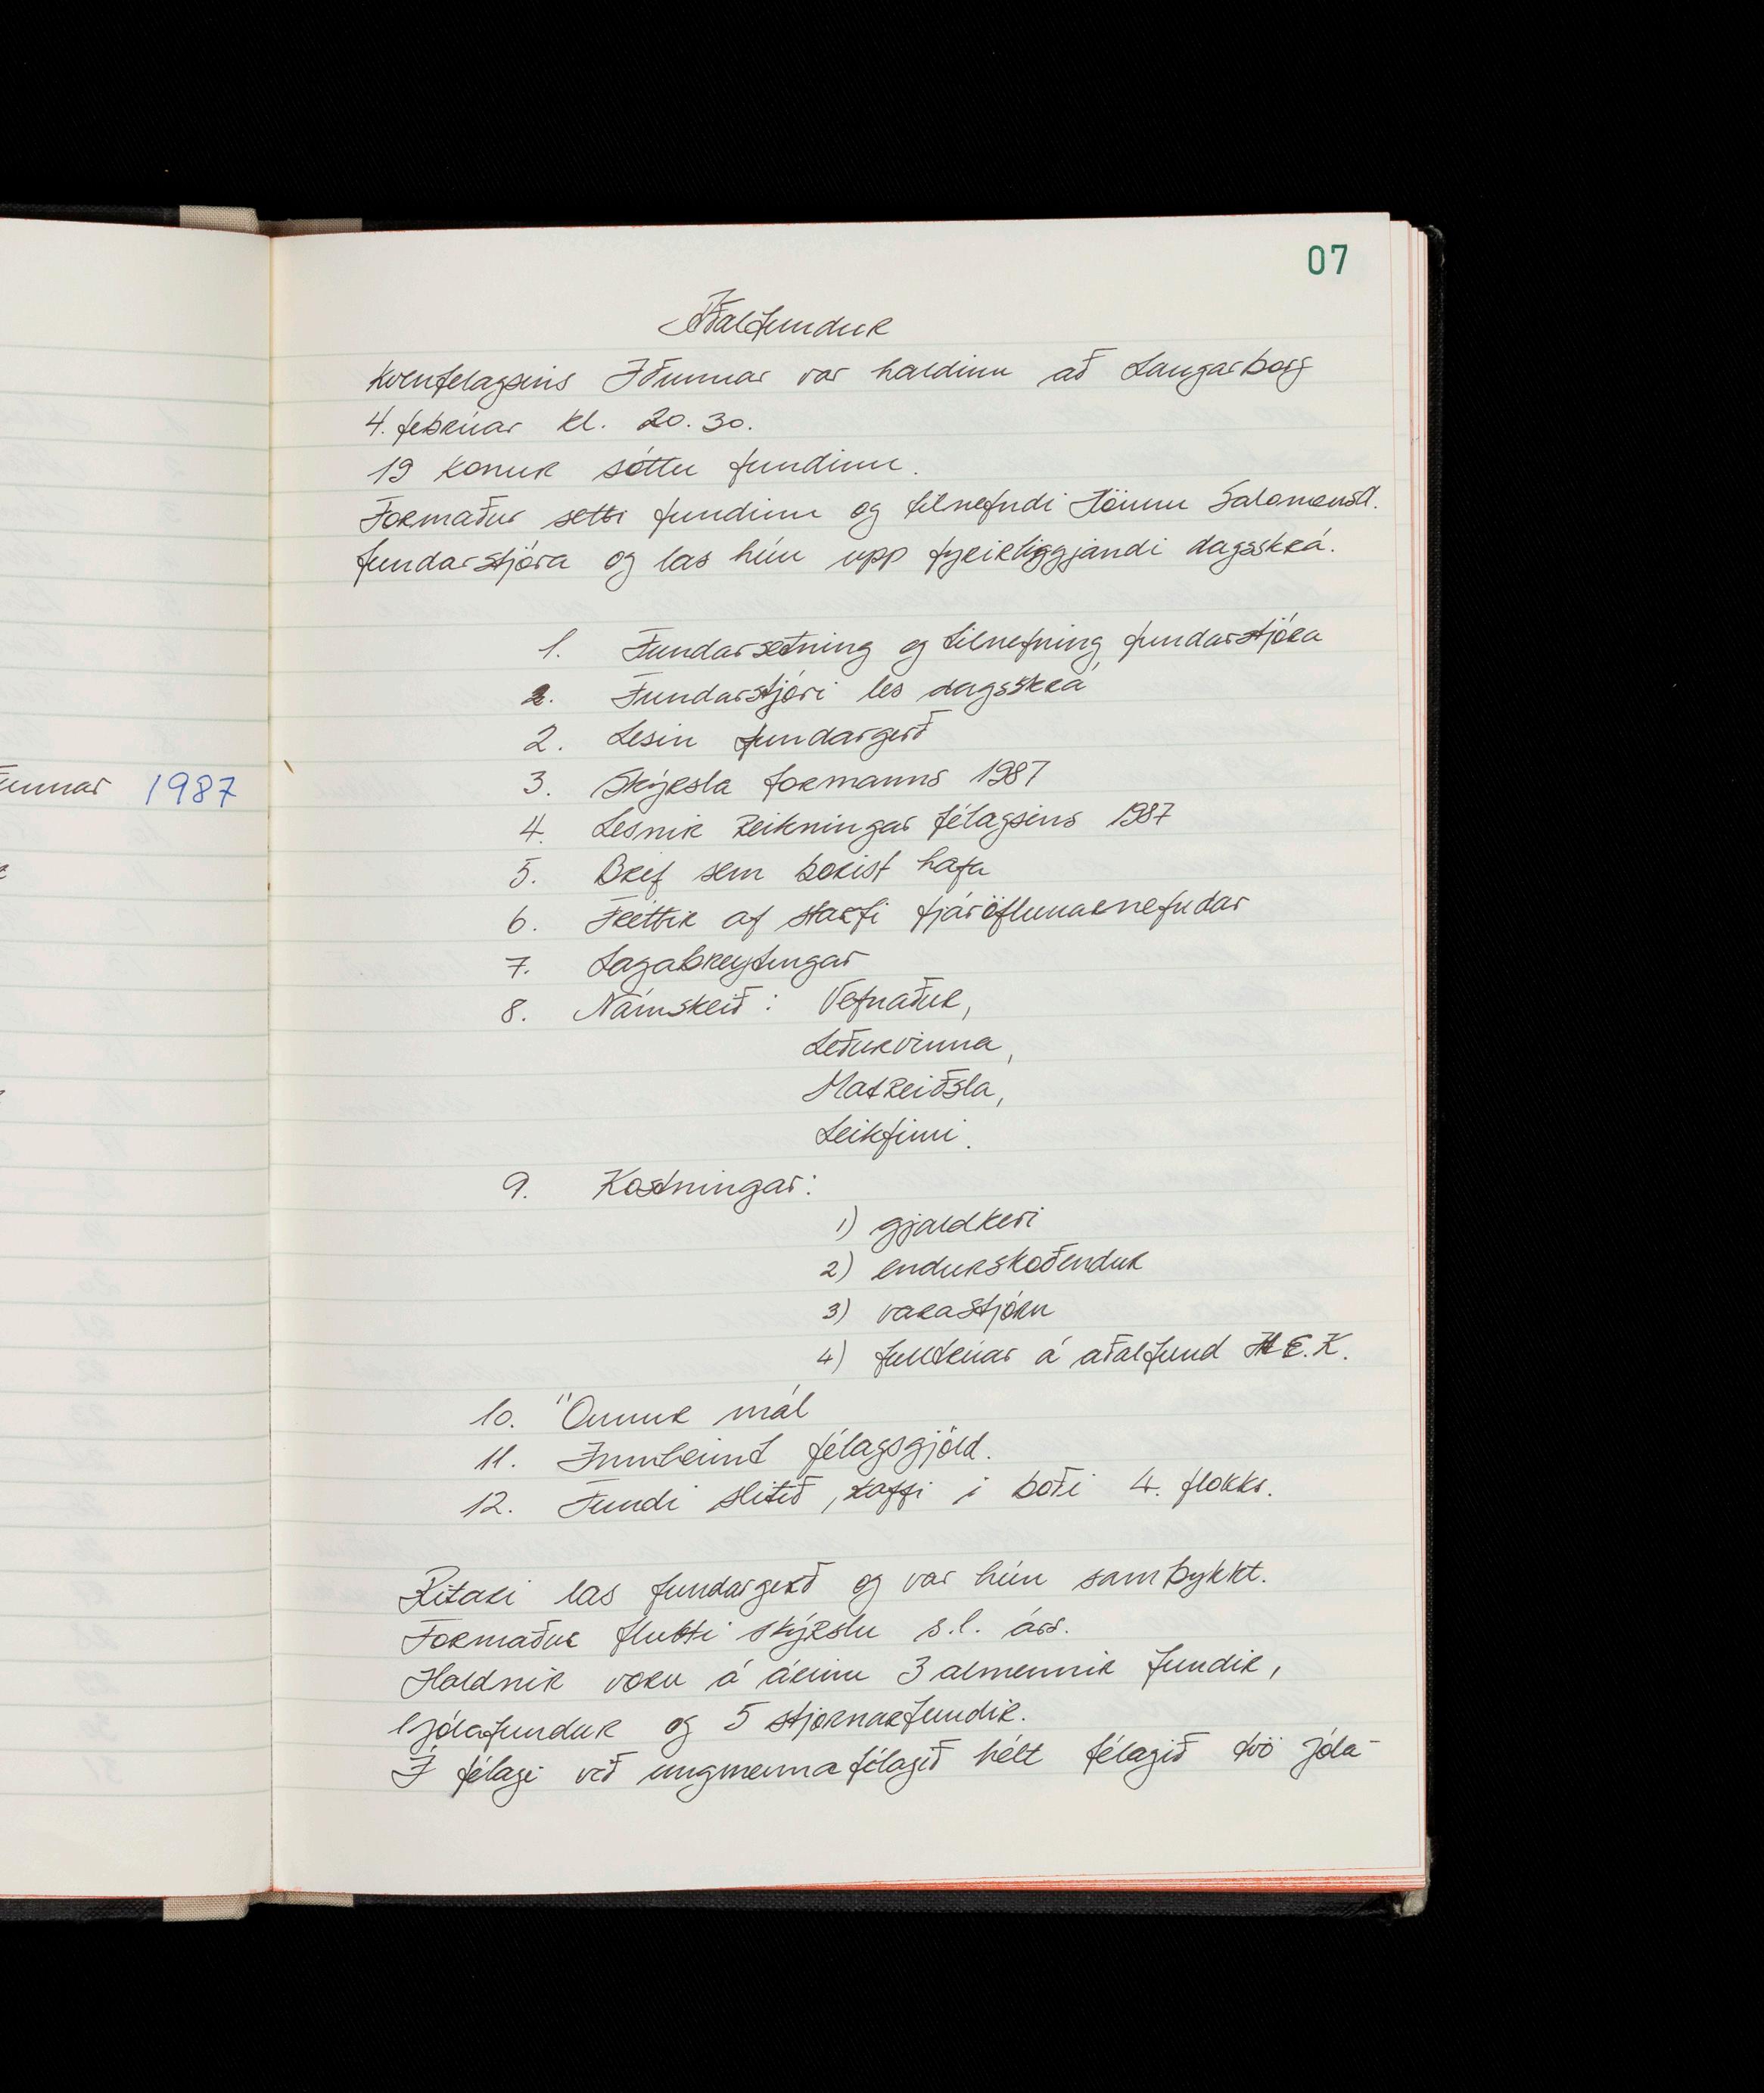 07
Aðalfundur
Kvenfelagsins Iðunnar var haldinn að Laugarborg
4. febrúar kl. 20.30.
19 konur sóttu fundinn.
Formaður setti fundinn og tilnefndi Jónnu Salomonsd.
fundarstjóra og las hún upp fyrirliggjandi dagsskrá.
1. Fundarsetning og tilnefning fundarstjóra
2. Fundarstjóri les dagsskrá
2. Lesin fundargerð
3. Skýrsla formanns 1987
unnar 1987
4. Lesnir reikningar félagsins 1987
5. Bref sem borist hafa
6. Fréttir af starfi fjáröflunarnefndar
7. Lagabreytingar
8. Námskeið: Vefnaður,
Leðurvinna,
Matreiðsla,
Leikfimi.
9. Kostningar:
1) gjaldkeri
2) endurskoðendur
3) varastjórn
4) fulltrúar á aðalfund H E.K.
10. Önnur mál
11. Innheimt félagsgjöld.
12. Fundi slitið, kaffi i boði 4. flokks.
Ritari las fundargerð og var hún samþykkt.
Formaður flutti skýrslu s.l. árs.
Haldnir voru á árinu 3 almennir fundir,
1 jólafundur og 5 stjornarfundir.
Í félagi við ungmennafélagið hélt félagið tvö jóla-